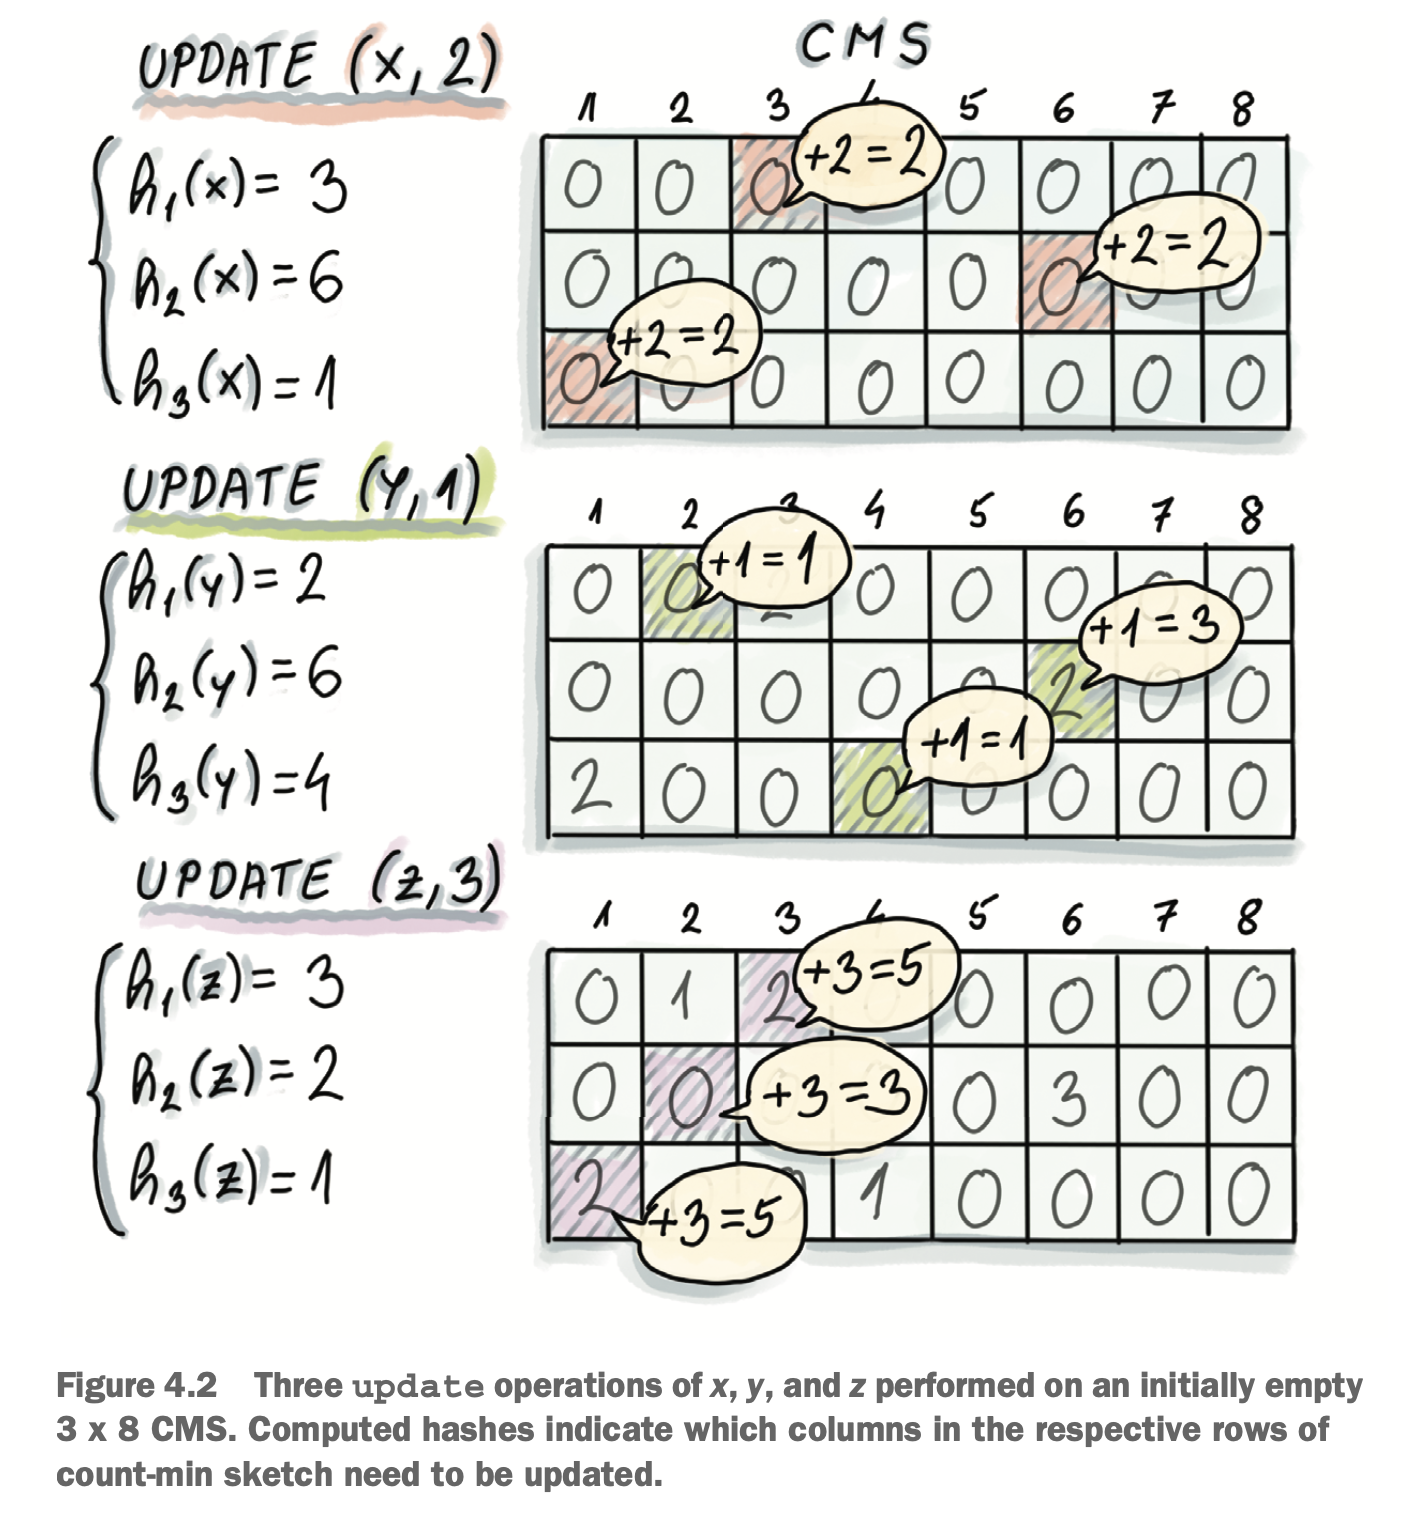 UPDATE (x, 2)
h₁(x) = 3
h₂(x) = 6
h₃(x) = 1
CMS
1 2 3 5 6 7 8
0 0 0 +2 = 2 0 0 0 0
0 0 0 0 0 0 +2 = 2 0 0
0 +2 = 2 0 0 0 0 0 0 0
UPDATE (y, 1)
h₁(y) = 2
h₂(y) = 6
h₃(y) = 4
1 2 3 4 5 6 7 8
0 0 +1 = 1 2 0 0 0 0 0
0 0 0 0 0 2 +1 = 3 0 0
2 0 0 0 +1 = 1 0 0 0 0
UPDATE (z, 3)
h₁(z) = 3
h₂(z) = 2
h₃(z) = 1
1 2 3 5 6 7 8
0 1 2 +3 = 5 0 0 0 0
0 0 +3 = 3 0 3 0 0
2 +3 = 5 0 1 0 0 0 0
Figure 4.2 Three update operations of x, y, and z performed on an initially empty
3 x 8 CMS. Computed hashes indicate which columns in the respective rows of
count-min sketch need to be updated.